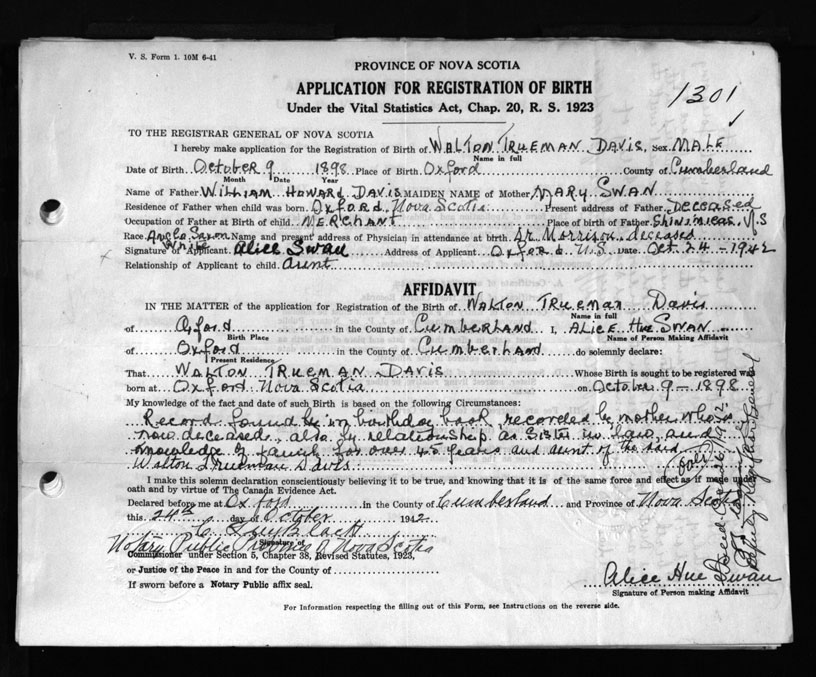 V. S. Form 1. 10M 6-41
PROVINCE OF NOVA SCOTIA
APPLICATION FOR REGISTRATION OF BIRTH
Under the Vital Statistics Act, Chap. 20, R. S. 1923
1301
TO THE REGISTRAR GENERAL OF NOVA SCOTIA
I hereby make application for the Registration of Birth of WALTON TRUEMAN DAVIS, Sex MALE
Name in full
Date of Birth October 9 1898 Place of Birth Oxford County of Cumberland
Month Date Year
Name of Father WILLIAM HOWARD DAVIS MAIDEN NAME of Mother MARY SWAN
Residence of Father when child was born Oxford, Nova Scotia Present address of Father Deceased
Occupation of Father at Birth of child MERCHANT Place of Birth of Father Shinimicas, N.S
Race Anglo Saxon Name and present address of Physician in attendance at birth Dr Morrison, deceased
White
Signature of Applicant Alice Swan Address of Applicant Oxford N.S Date Oct 24-1942
Relationship of Applicant to child Aunt
AFFIDAVIT
IN THE MATTER of the application for Registration of the Birth of WALTON TRUEMAN Davis
Name in full
of Oxford in the County of CUMBERLAND I, ALICE HUE SWAN
Birth Place Name of Person Making Affidavit
of Oxford in the County of CUMBERLAND do solemnly declare:
Present Residence
That WALTON TRUEMAN DAVIS Whose Birth is sought to be registered was
born at Oxford Nova Scotia on October 9-1898
My knowledge of the fact and date of such Birth is based on the following Circumstances:
Record found by in birthday book, recorded by mother who is
now deceased, also by relationship as Sister in law and
knowledge of family for over 45 years and aunt of the said
Walton Trueman Davis
I make this solemn declaration conscientiously believing it to be true, and knowing that it is of the same force and effect as if made under
oath and by virtue of The Canada Evidence Act.
Declared before me at Oxford in the County of Cumberland and Province of Nova Scotia
this 24th day of October 1942
Signature of
Notary Public Province of Nova Scotia
Commissioner under Section 5, Chapter 38, Revised Statutes, 1923,
or Justice of the Peace in and for the County of
If sworn before a Notary Public affix seal.
Alice Hue Swan
Signature of Person making Affidavit
For Information respecting the filling out of this Form, see Instructions on the reverse side.
Deputy Registrar General